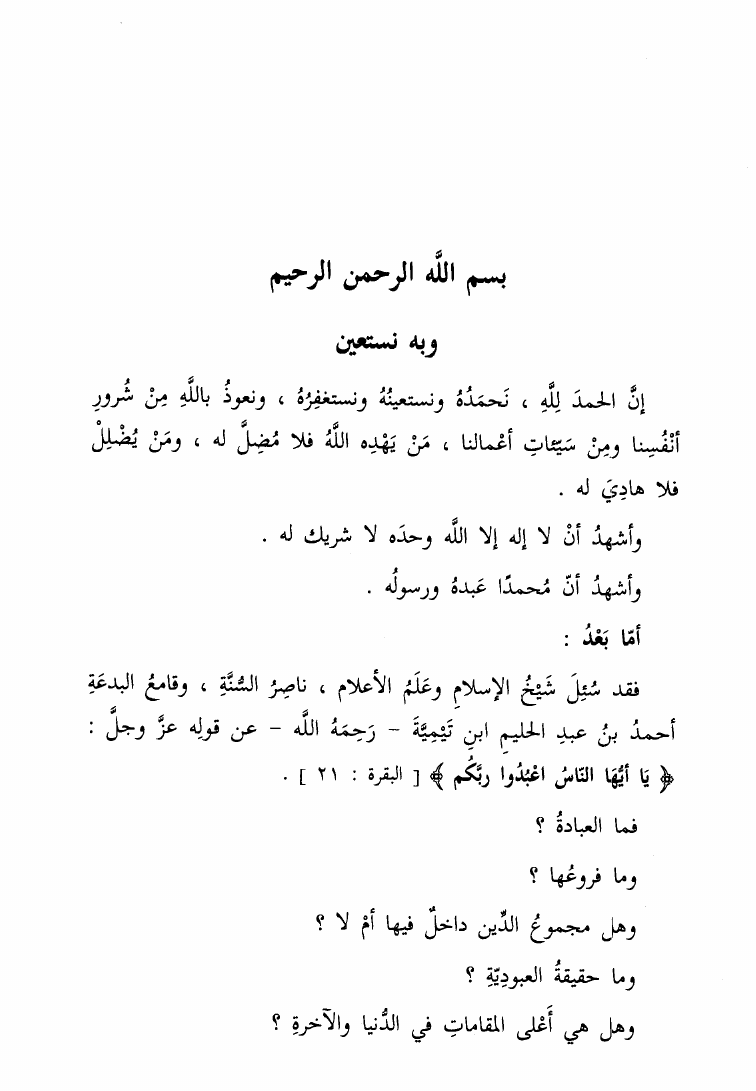 بسم اللَّه الرحمن الرحيم
وبه نستعين
إنَّ الحمدَ لِلَّهِ ، نَحمَدُهُ ونستعينُهُ ونستغفِرُهُ ، ونعوذُ باللَّهِ مِنْ شُرورِ
أنْفُسِنا ومِنْ سَيّئاتِ أعْمالنا ، مَنْ يَهْدِه اللَّهُ فلا مُضِلَّ له ، ومَنْ يُضْلِلْ
فلا هادِيَ له .
وأشهدُ أنْ لا إله إلا اللَّه وحدَه لا شريك له .
وأشهدُ أنّ مُحمدًا عَبدهُ ورسولُه .
أمّا بَعْدُ :
فقد سُئِلَ شَيْخُ الإسلامِ وعَلَمُ الأعلام ، ناصِرُ السُّنَّةِ ، وقامعُ البدعَةِ
أحمدُ بنُ عبدِ الحليمِ ابنِ تَيْمِيَّةَ – رَحِمَهُ اللَّه – عن قولِه عزَّ وجلَّ :
﴿ يَا أيُّهَا النّاسُ اعْبُدُوا ربَّكُم ﴾ [ البقرة : ٢١ ] .
فما العبادةُ ؟
وما فروعُها ؟
وهل مجموعُ الدِّين داخلٌ فيها أمْ لا ؟
وما حقيقةُ العبودِيّةِ ؟
وهل هي أَعْلى المقاماتِ في الدُّنيا والآخرةِ ؟